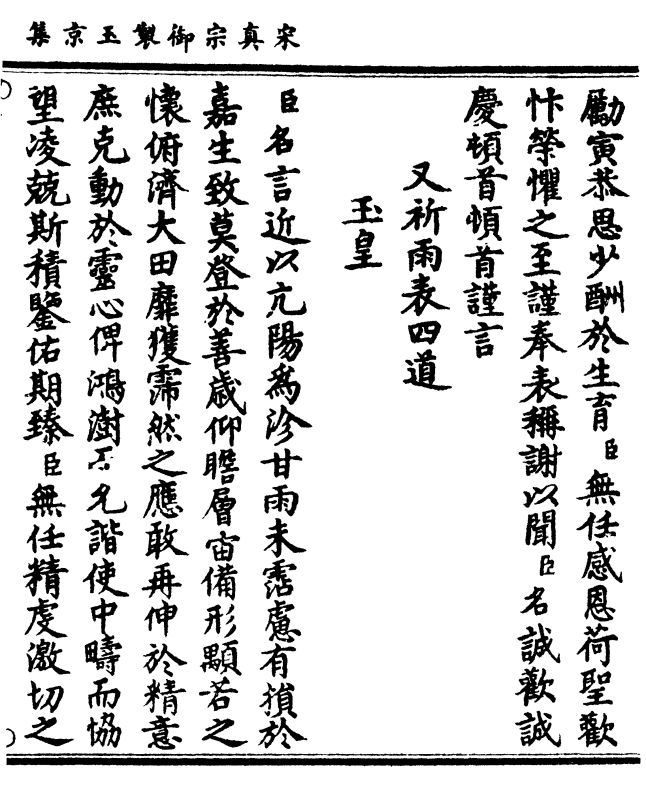 宋真宗御製玉京集
勵寅恭思少酬於生育臣無任感恩荷聖歡
忭榮懼之至謹奉表稱謝以聞臣名誠歡誠
慶頓首頓首謹言
又祈雨表四道
玉皇
臣名言近以亢陽為沴甘雨未霑慮有損於
嘉生致莫登於善歲仰瞻層宙備形顒若之
懷俯濟大田靡獲霈然之應敢再伸於精意
庶克動於靈心俾鴻澍允諧使中疇而協
望凌兢斯積鑒佑期臻臣無任精虔激切之